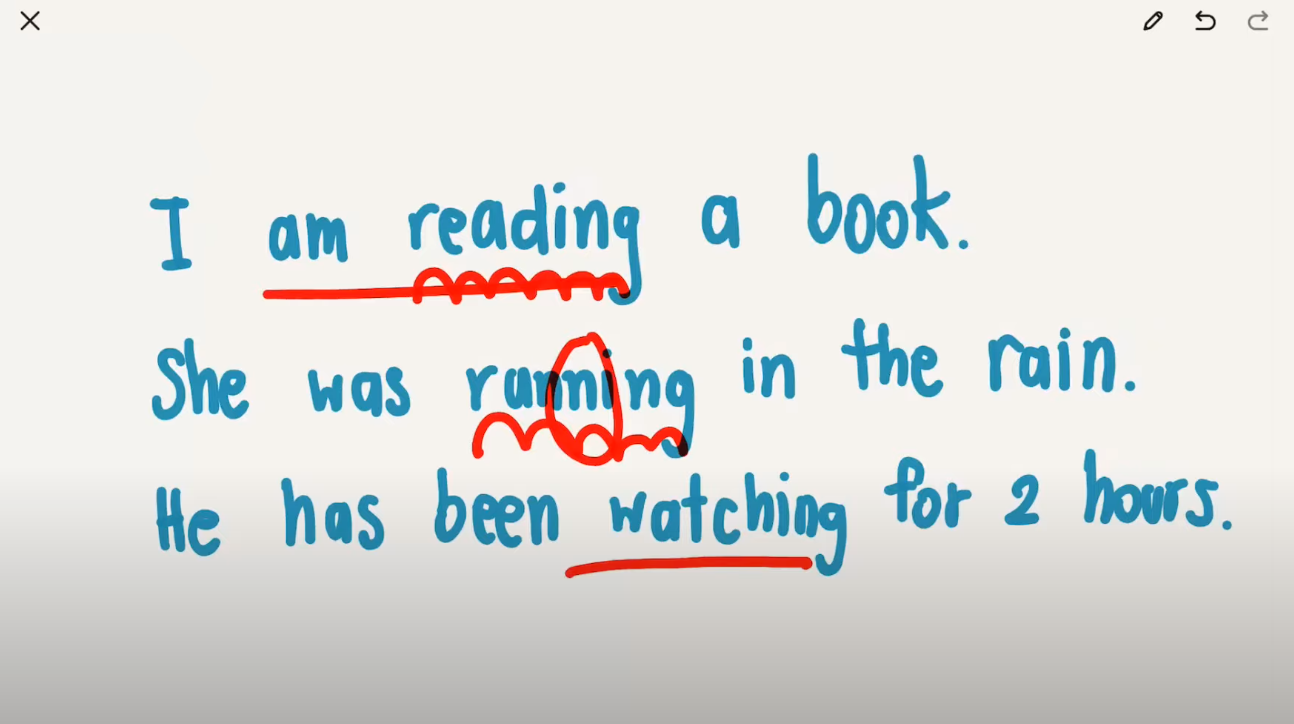 I am reading a book.
She was running in the rain.
He has been watching for 2 hours.